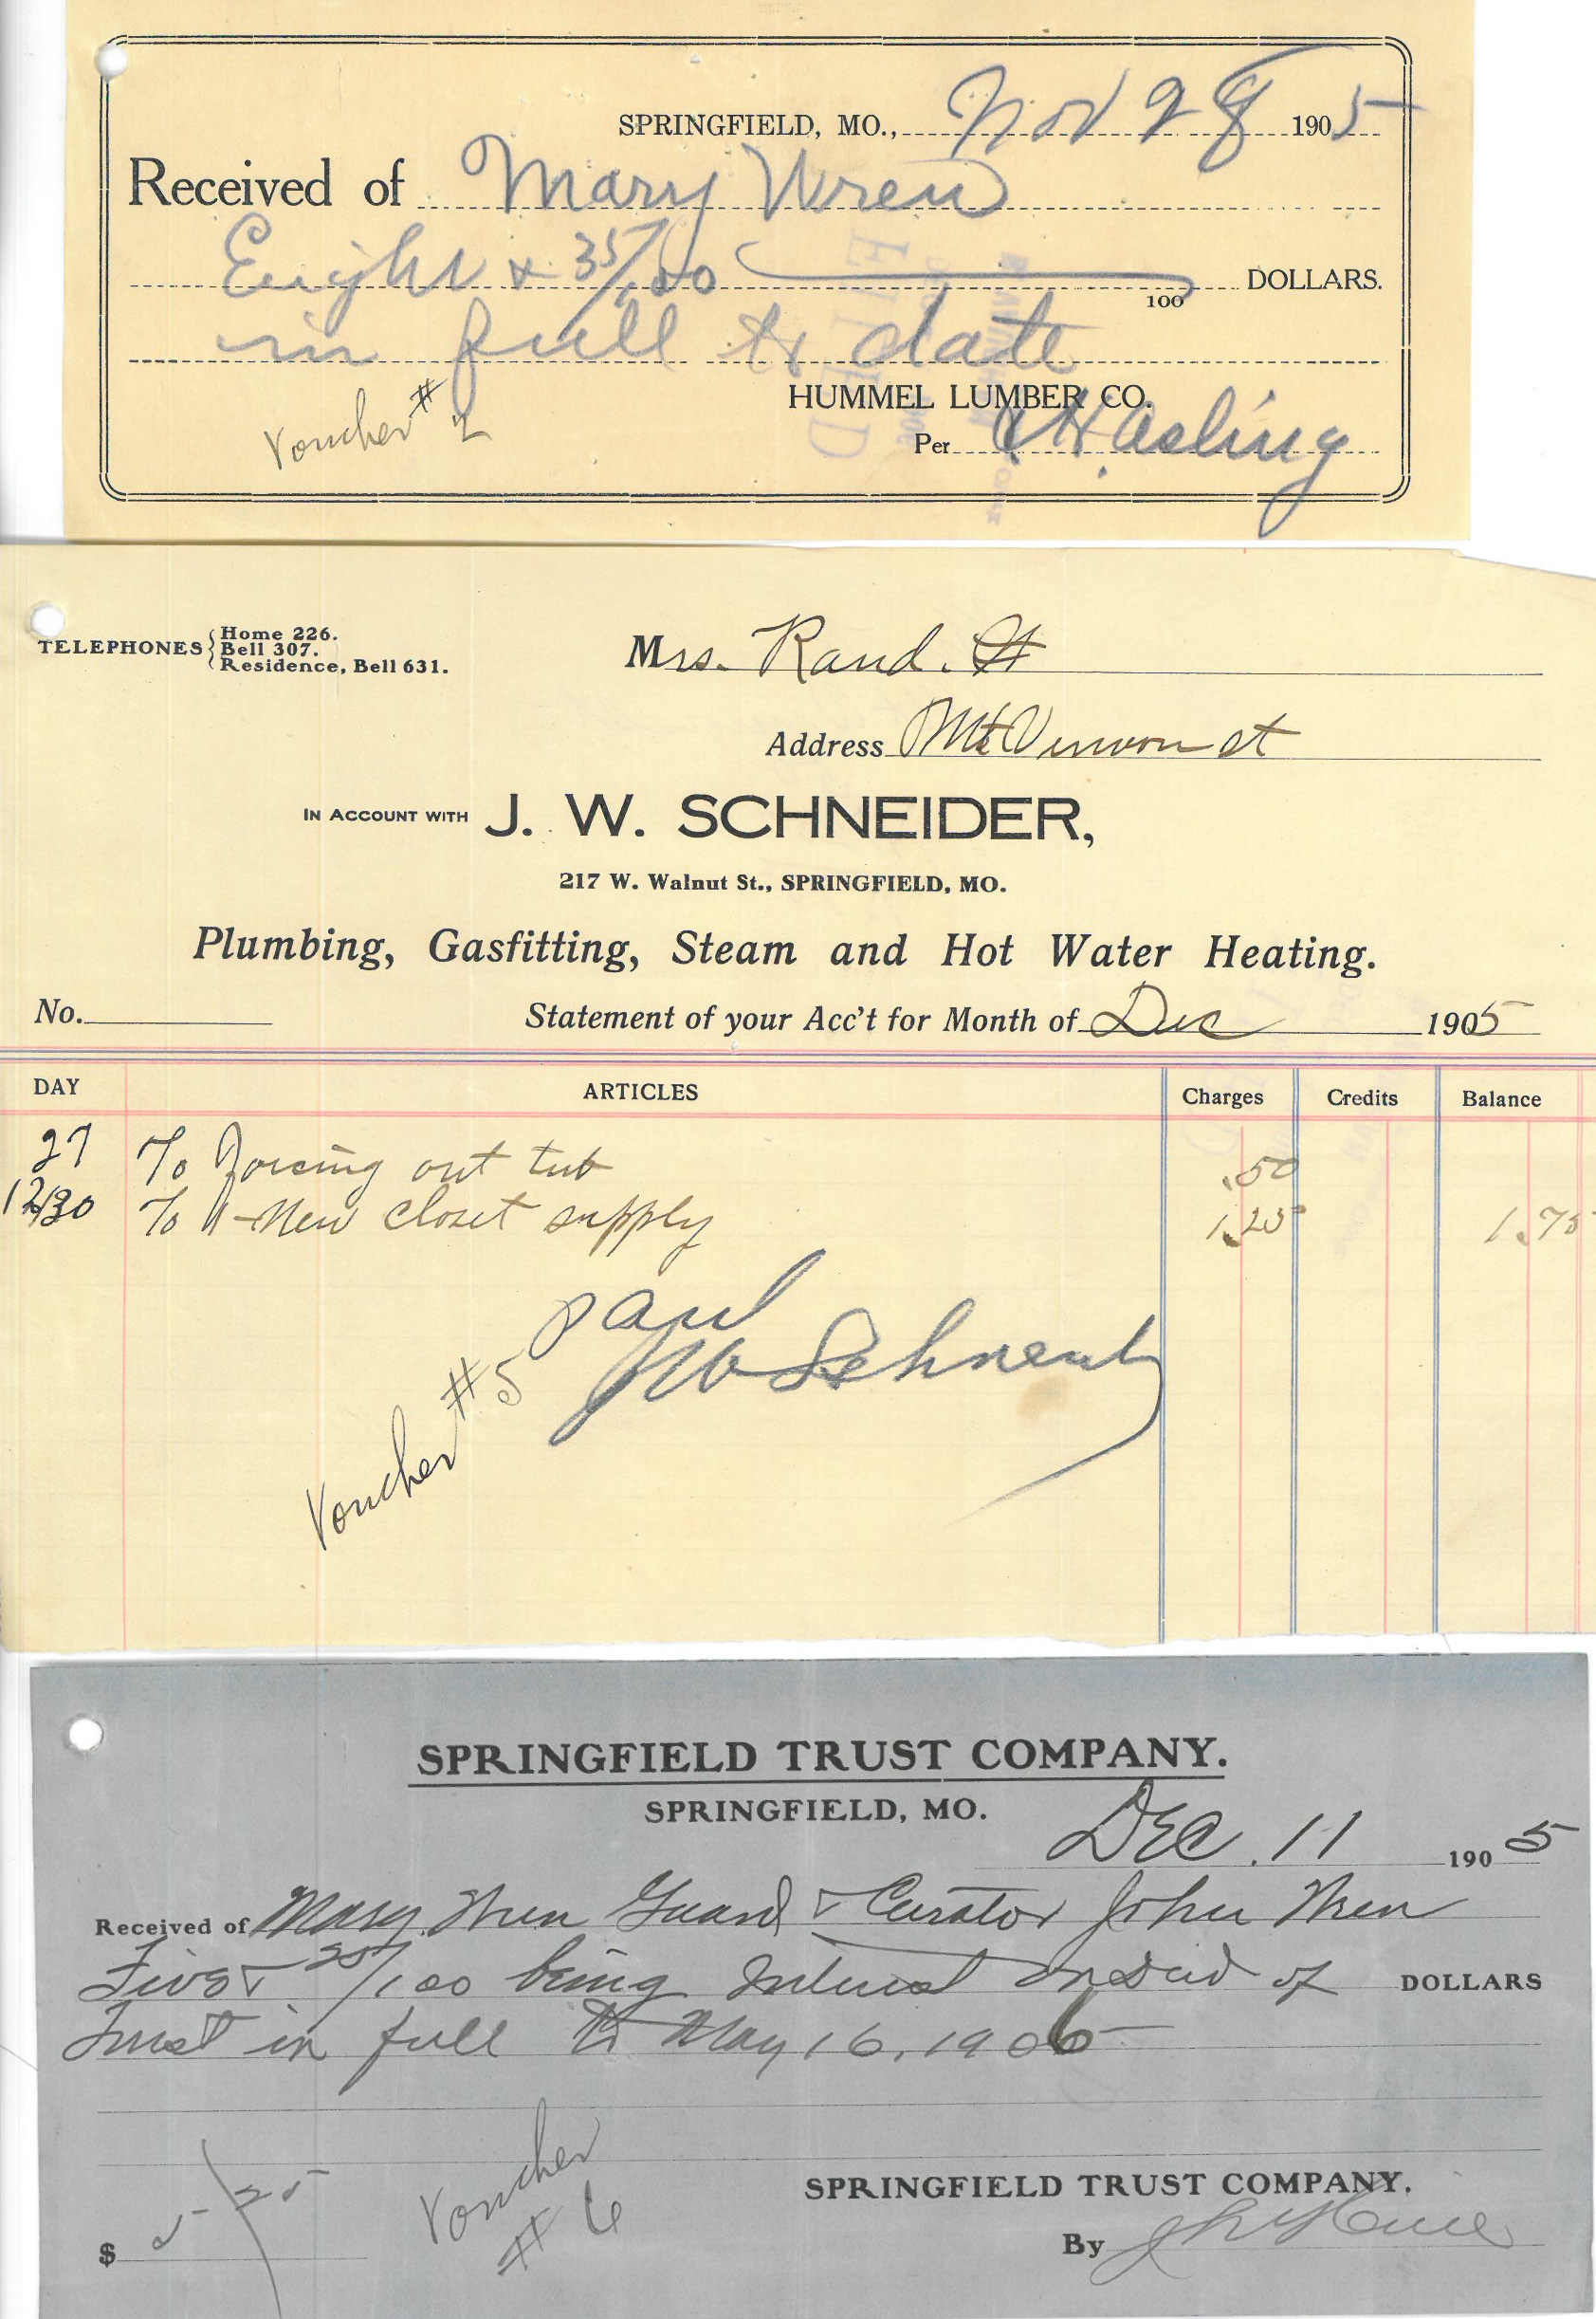 SPRINGFIELD, MO., Nov 28 1905
Received of Mary Wren
Eight & 35/100 100 DOLLARS.
in full to date
HUMMEL LUMBER CO.
Voucher # 2
Per Hasling
TELEPHONES { Home 226.
Bell 307.
Residence, Bell 631.
Mrs. Rand. St
Address Mt Vernon st
IN ACCOUNT WITH J. W. SCHNEIDER,
217 W. Walnut St., SPRINGFIELD, MO.
Plumbing, Gasfitting, Steam and Hot Water Heating.
No. Statement of your Acc't for Month of Dec 1905
DAY ARTICLES Charges Credits Balance
27 To Forcing out tub .50
12/30 To 1 New closet supply 1.25 1.75
paid
JW Schneider
Voucher #5
SPRINGFIELD TRUST COMPANY.
SPRINGFIELD, MO.
DEC. 11 1905
Received of Mary Wren Guard & Curator John Wren
Five & 25/100 being Interest on Deed of DOLLARS
Trust in full to May 16, 1906
Voucher
# 6
SPRINGFIELD TRUST COMPANY.
$ 5/25
By